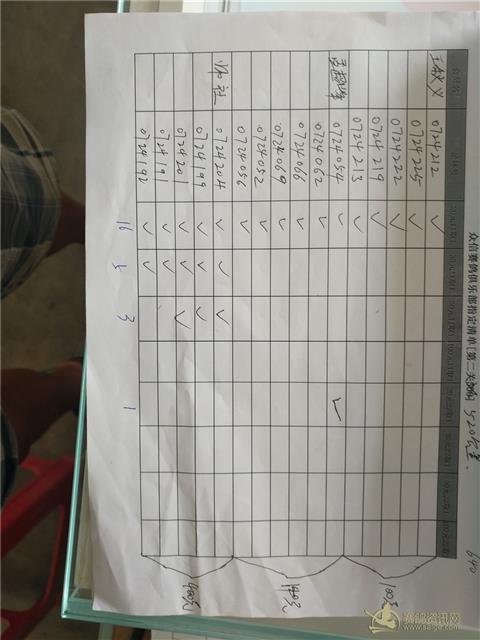 众信赛鸽俱乐部指定清单[第二关 520公里.
640
0724212 ✓
0724225 ✓
0724222 ✓
0724219 ✓
0724213 ✓
100元
0724054 ✓ ✓
0724062 ✓
0724066 ✓
0724069 ✓
0724052 ✓
0724056 ✓
140元
0724204 ✓ ✓ ✓
0724199 ✓ ✓ ✓
0724201 ✓ ✓ ✓
0724191 ✓ ✓
0724192 ✓ ✓
400元
16 5 3 1
赛鸽资讯网
www.saige.com